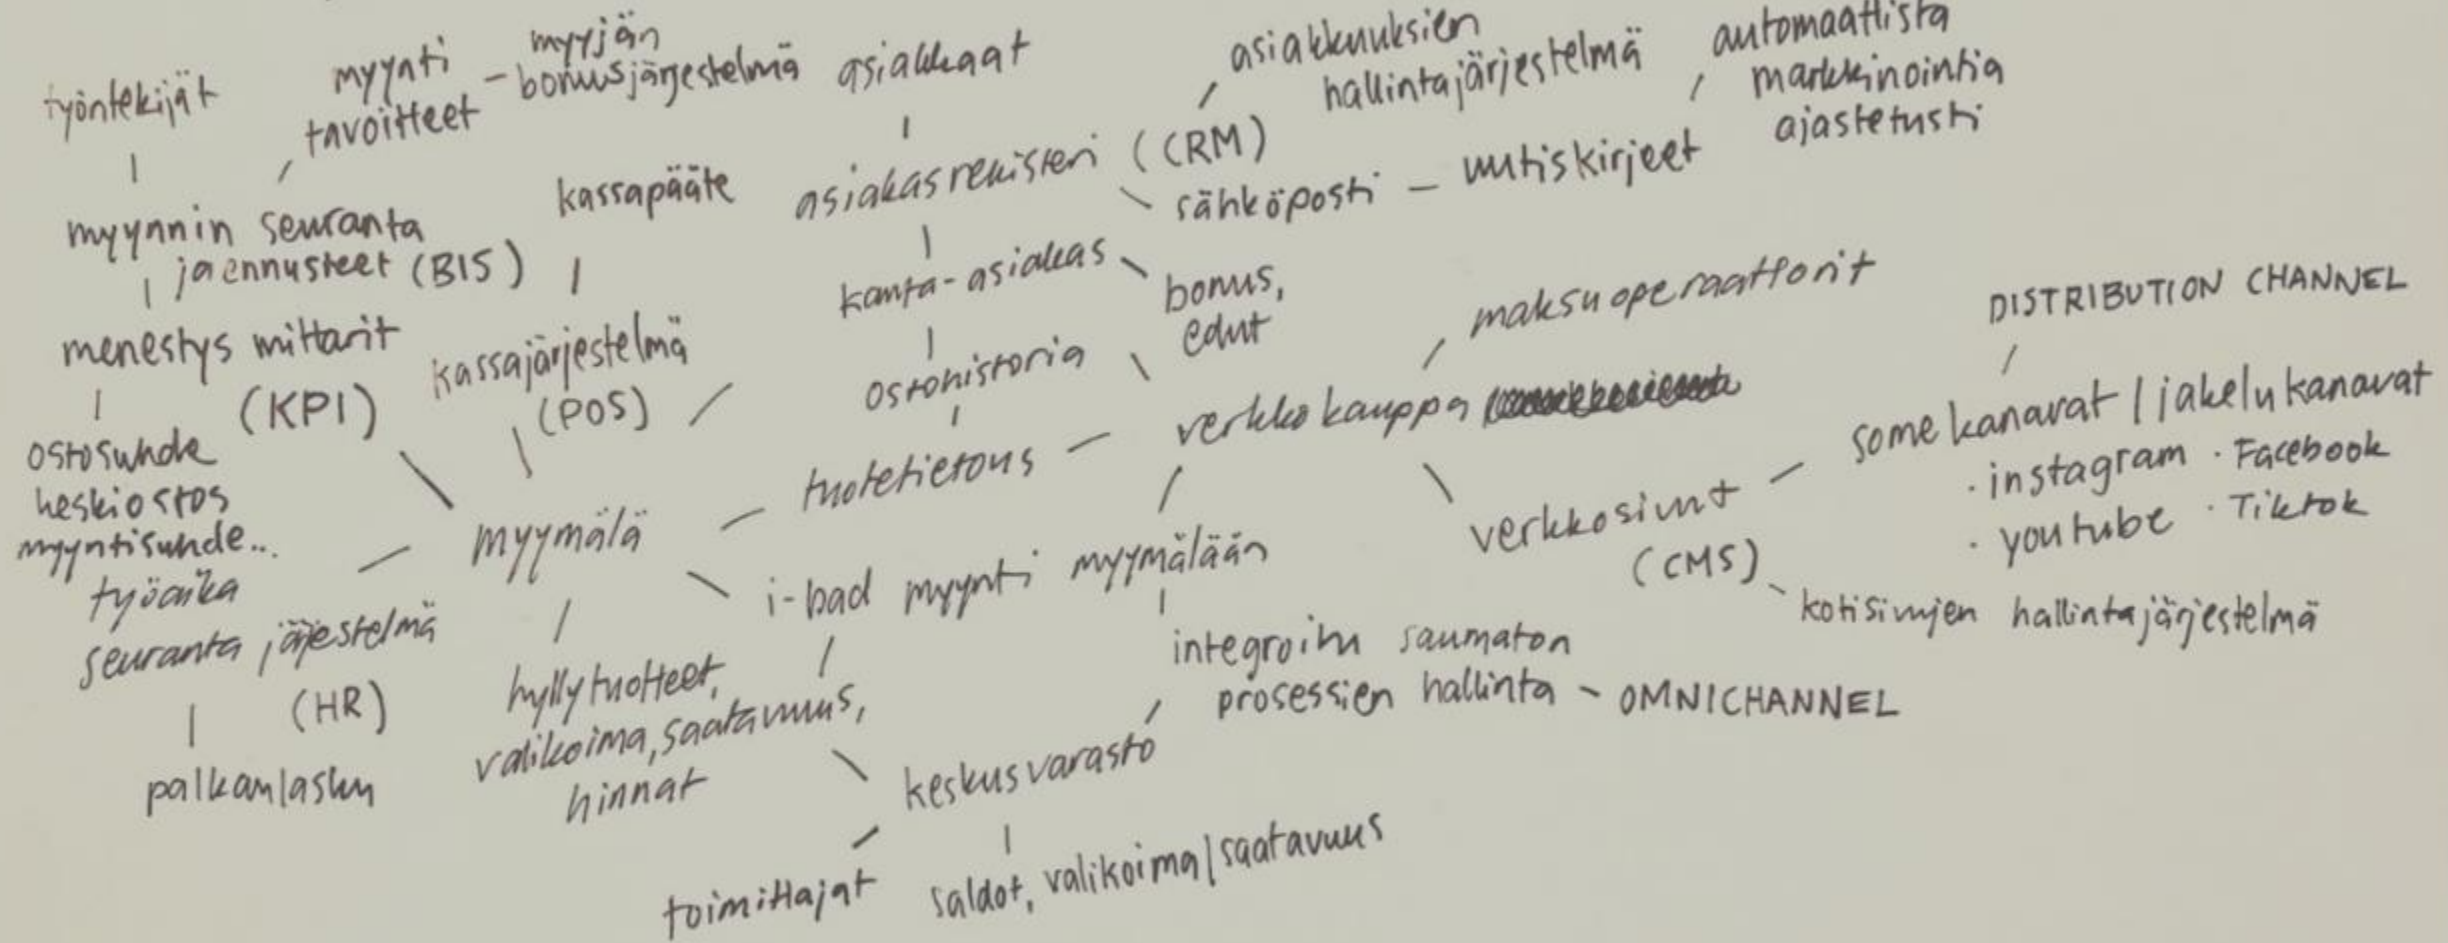 työntekijät
myynti
tavoitteet
- myyjän
bonusjärjestelmä
asiakkaat
asiakkuuksien
hallintajärjestelmä
automaattista
markkinointia
ajastetusti
myynnin seuranta
ja ennusteet (BIS)
kassapääte
asiakasrekisteri (CRM)
sähköposti - uutiskirjeet
menestys mittarit
(KPI)
kassajärjestelmä
(POS)
kanta-asiakas
bonus,
edut
ostohistoria
maksuoperaattorit
verkkokauppa
DISTRIBUTION CHANNEL
some kanavat / jakelukanavat
· instagram · Facebook
· youtube · Tiktok
ostosuhde
keskiostos
myyntisuhde...
myymälä
tuotetietous
verkkosivut
(CMS)
kotisivujen hallintajärjestelmä
työaika
seuranta järjestelmä
(HR)
palkanlasku
i-pad myynti myymälään
integroitu saumaton
prosessien hallinta - OMNICHANNEL
hyllytuotteet,
valikoima, saatavuus,
hinnat
keskusvarasto
toimittajat
saldot, valikoima / saatavuus